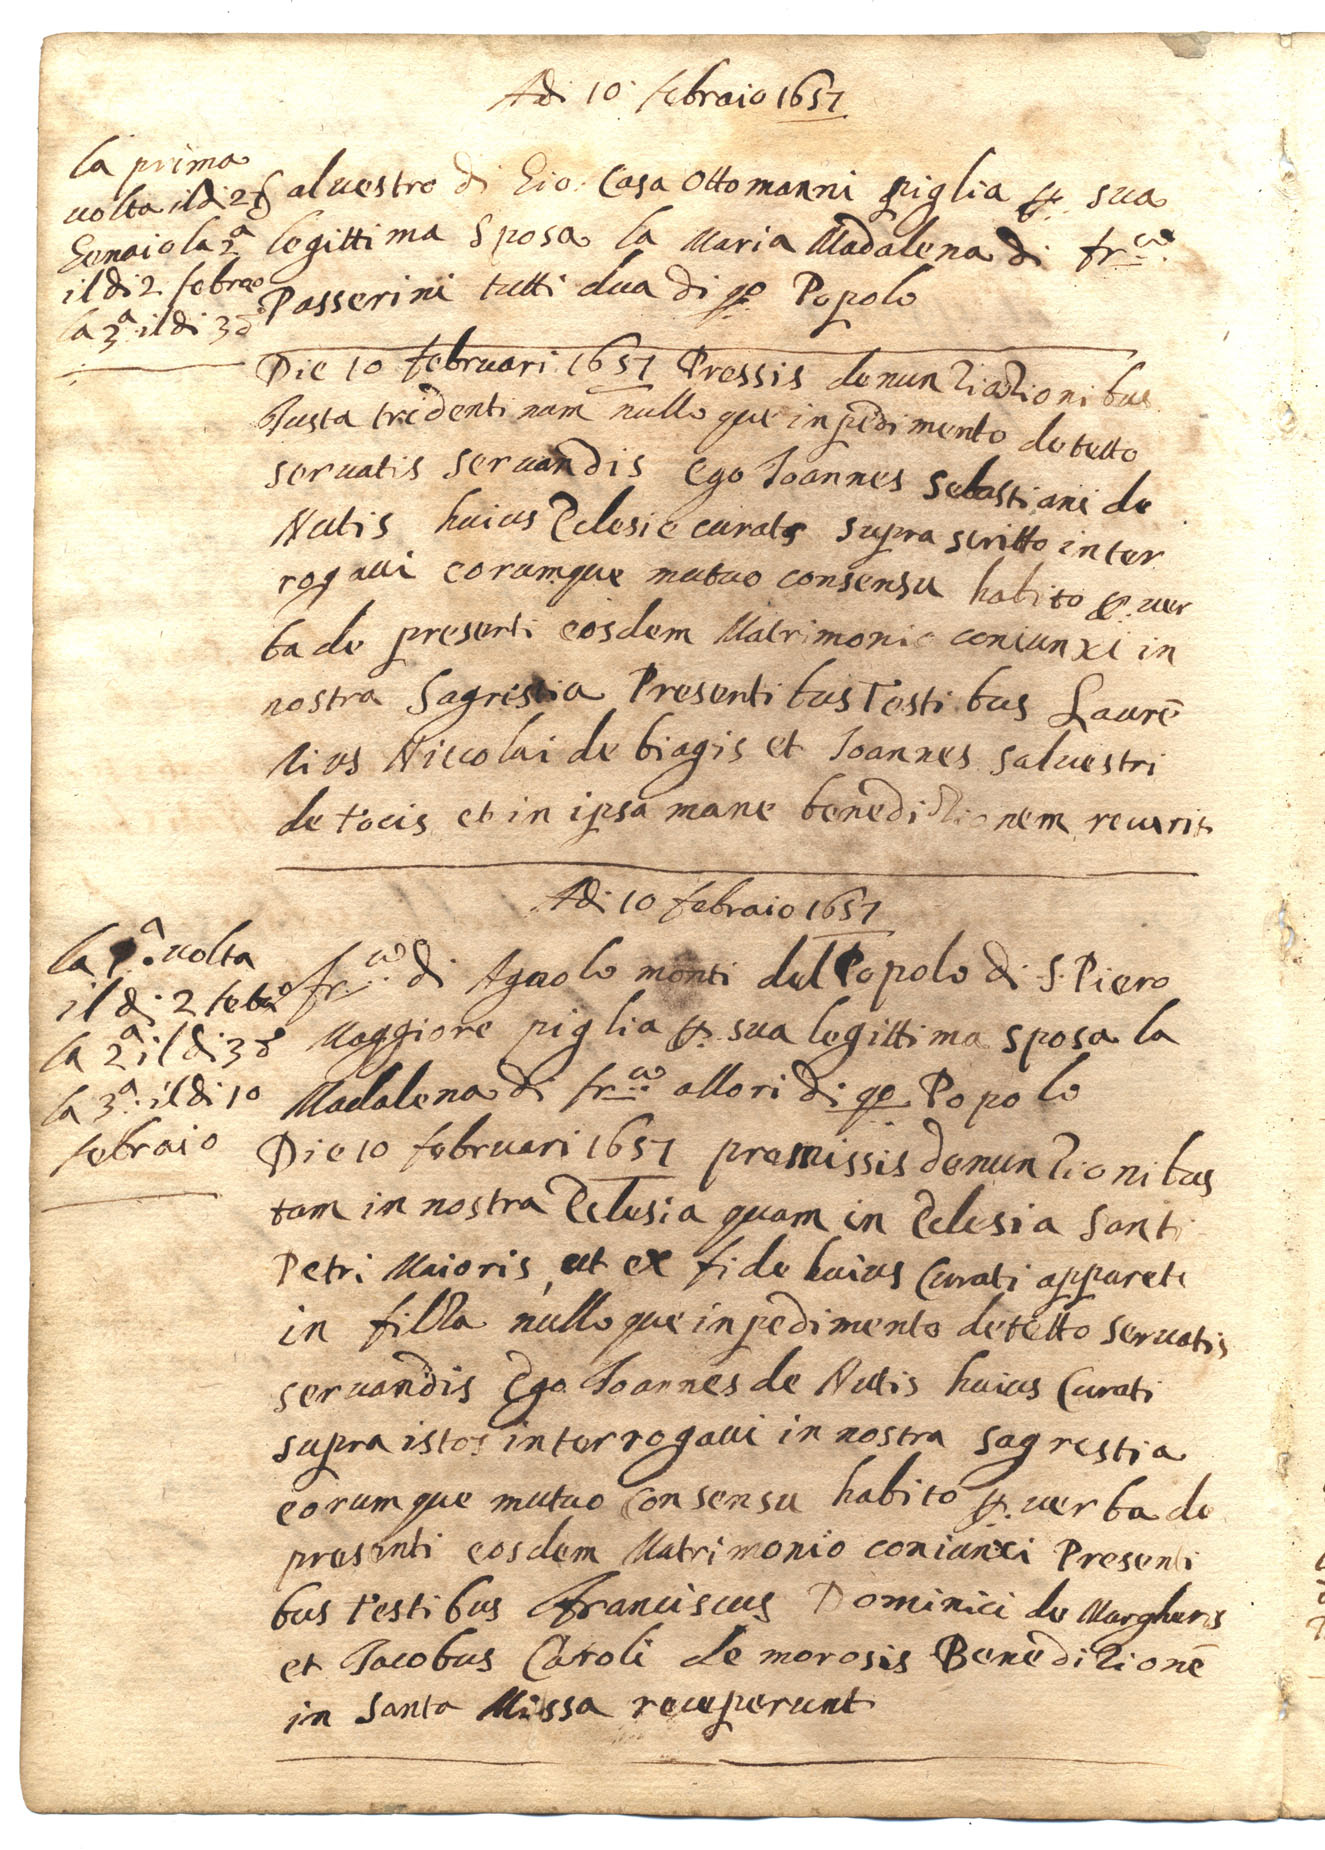 Adi 10 febraio 1657
la prima
uolta il di 28
Genaio la 2a
il di 2 febrao
la 3a il di 3 do
Saluestro di Gio: Casa Ottomanni piglia p. sua
legittima Sposa la Maria Madalena di fr.co
Passerini tutti dua di qo Popolo
Die 10 februari 1657 Pressis denuntiationibus
Iusta tridentinam nulloque inpedimento detetto
seruatis seruandis ego Ioannes Sebastiani de
Nutis huius Eclesie curats supra scritto inter
rogaui eorumque mutuo consensu habito p. uer
ba de presenti eosdem Matrimonio coniunxi in
nostra Sagrestia Presentibus Testibus Laurē
tius Niccolai de biagis et Ioannes Saluestri
de tocis et in ipsa mane beneditionem
Adi 10 febraio 1657
la 1a uolta
il di 2 feba
la 2a il di 3 do
la 3a il di 10
febraio
fr.co di Agnolo monti del Popolo di S. Piero
Maggiore piglia p. sua legittima sposa la
Madalena di fr.co allori di qo Popolo
Die 10 februari 1657 premissis denuntionibus
tam in nostra Eclesia quam in Eclesia Santi
Petri Maioris, ut ex fide huius Curati apparet
in filza nulloque inpedimento detetto seruatis
seruandis Ego Ioannes de Nutis huius Curati
supra istos interrogaui in nostra sagrestia
eorumque mutuo consensu habito p. uerba de
presenti eosdem Matrimonio coniunxi Presenti
bus testibus Franciscus Dominici de Margheris
et Iacobus Caroli de morosis Beneditionē
in Santa Missa receperunt